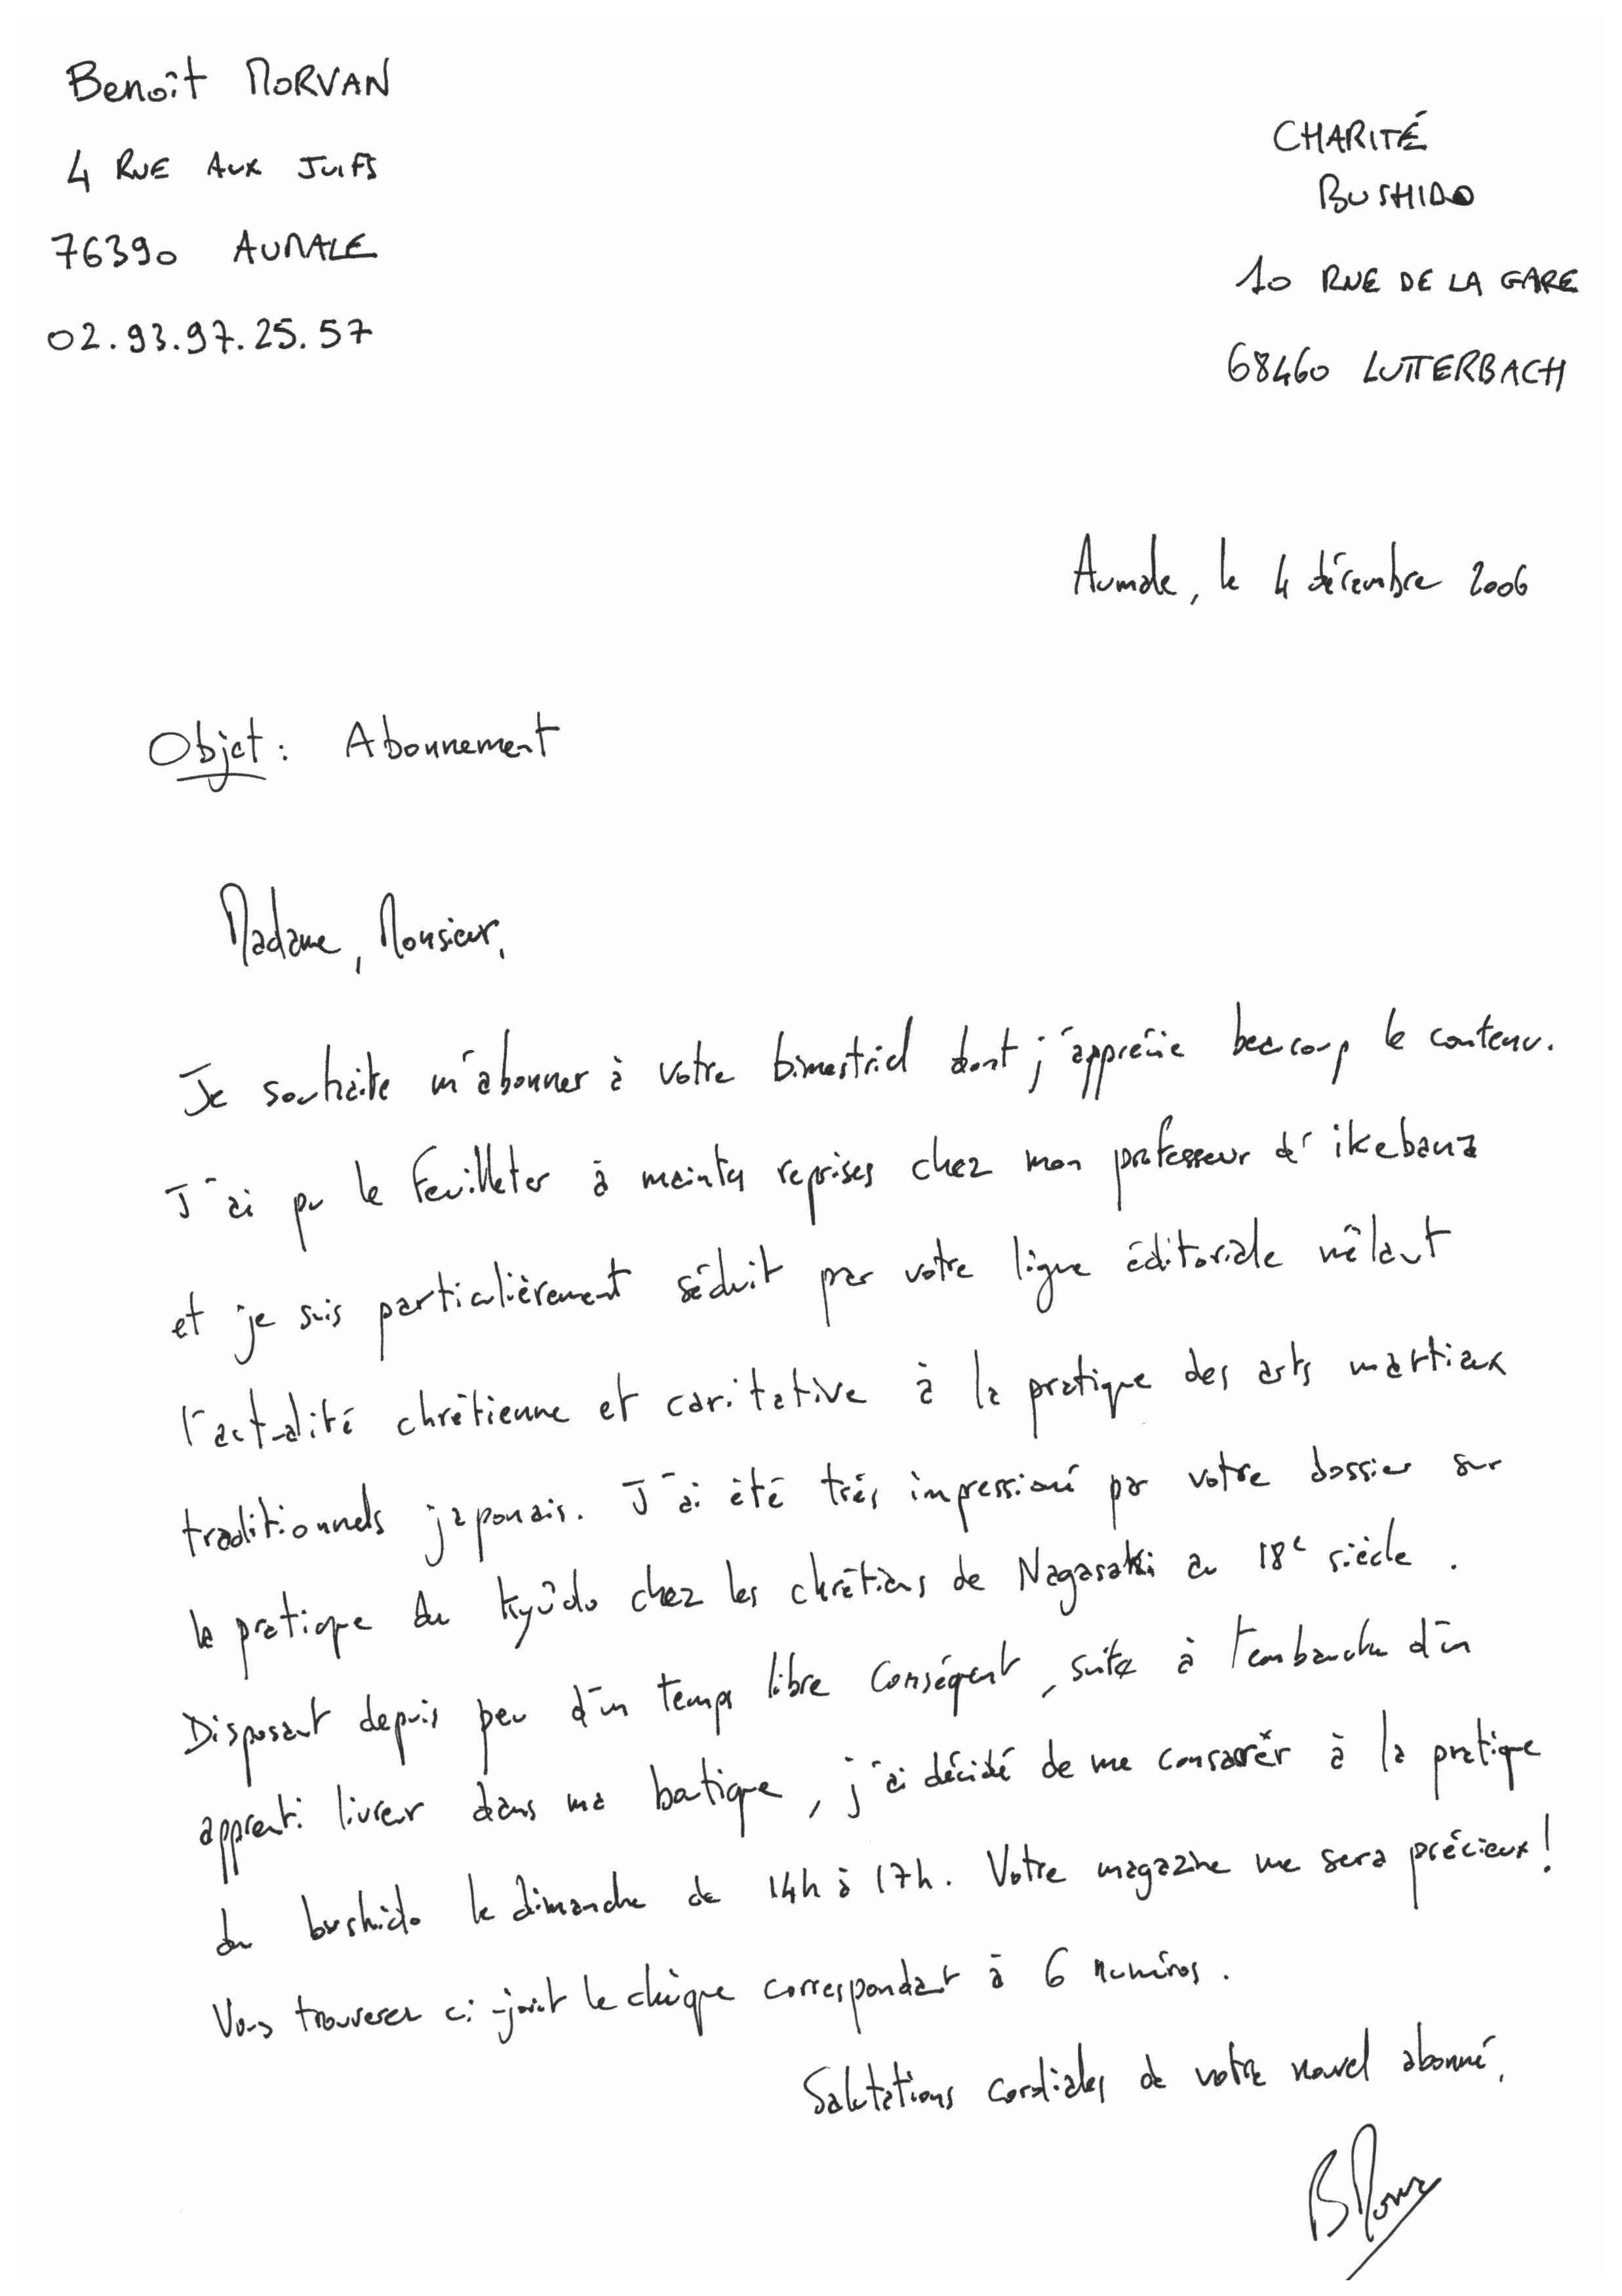 Benoît MORVAN
4 RUE AUX JUIFS
76390 AUMALE
02.93.97.25.57
CHARITÉ
BUSHIDO
10 RUE DE LA GARE
68460 LUTTERBACH
Aumale, le 4 décembre 2006
Objet : Abonnement
Madame, Monsieur,
Je souhaite m'abonner à votre bimestriel dont j'apprécie beaucoup le contenu.
J'ai pu le feuilleter à maintes reprises chez mon professeur d'ikebana
et je suis particulièrement séduit par votre ligne éditoriale mêlant
l'actualité chrétienne et caritative à la pratique des arts martiaux
traditionnels japonais. J'ai été très impressioné par votre dossier sur
la pratique du Kyûdo chez les chrétiens de Nagasaki au 18e siècle.
Disposant depuis peu d'un temps libre conséquent, suite à l'embauche d'un
apprenti livreur dans ma boutique, j'ai décidé de me consacrer à la pratique
du bushido le dimanche de 14h à 17h. Votre magazine me sera précieux !
Vous trouverez ci-joint le chèque correspondant à 6 numéros.
Salutations cordiales de votre nouvel abonné.